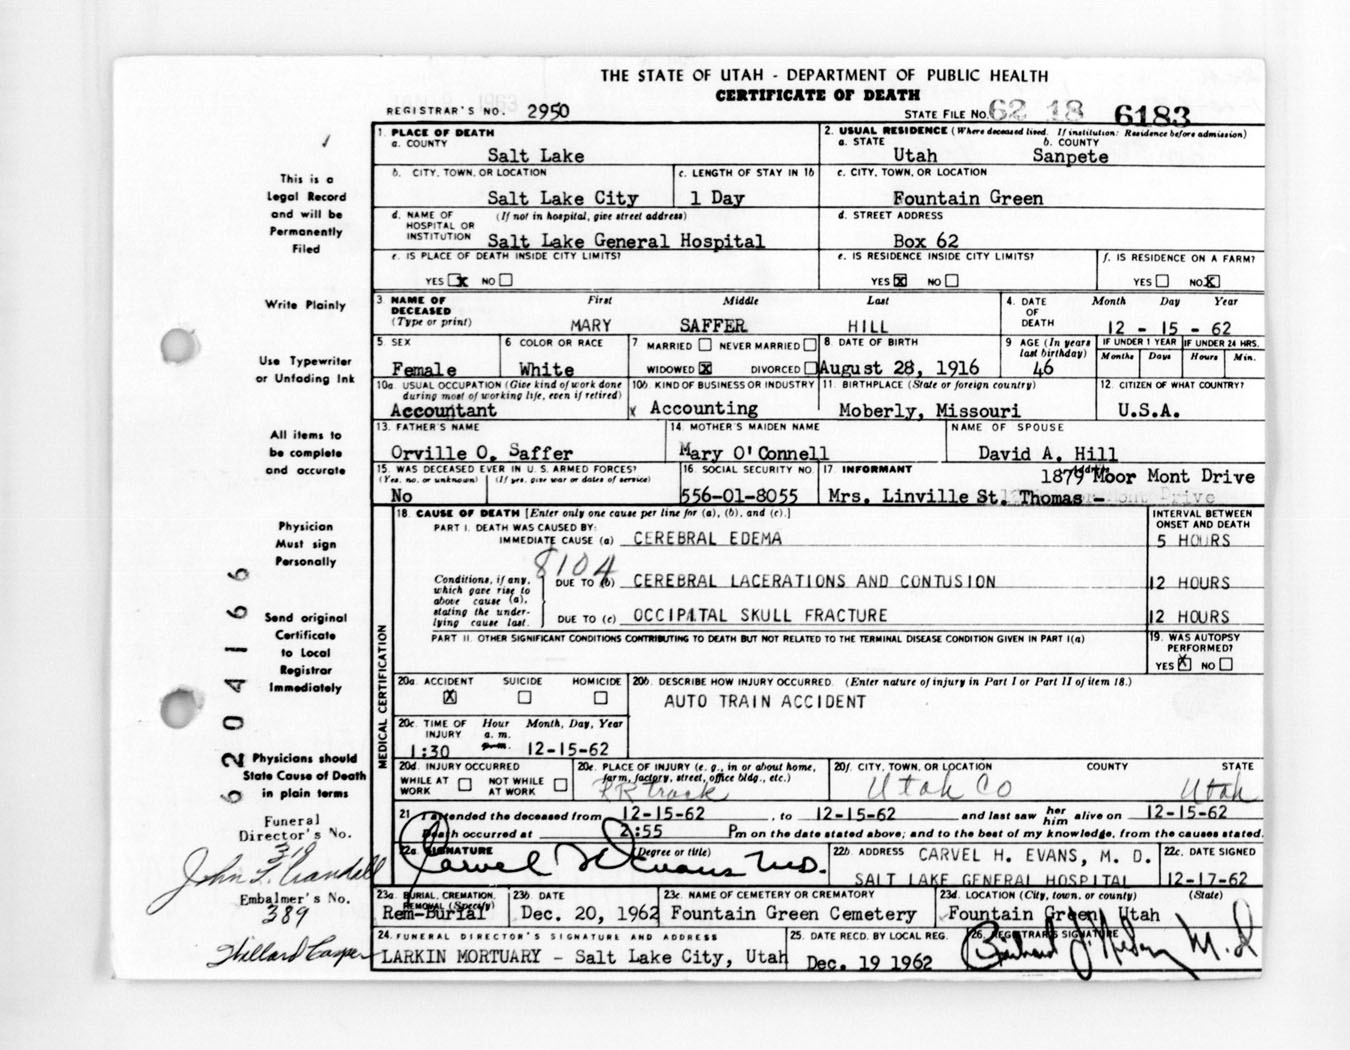 THE STATE OF UTAH - DEPARTMENT OF PUBLIC HEALTH
CERTIFICATE OF DEATH
REGISTRAR'S NO. 2950
STATE FILE NO. 62 18 6183
1. PLACE OF DEATH
a. COUNTY
Salt Lake
2. USUAL RESIDENCE (Where deceased lived. If institution: Residence before admission)
a. STATE b. COUNTY
Utah Sanpete
b. CITY, TOWN, OR LOCATION
Salt Lake City
c. LENGTH OF STAY IN 1b
1 Day
c. CITY, TOWN, OR LOCATION
Fountain Green
d. NAME OF HOSPITAL OR INSTITUTION (If not in hospital, give street address)
Salt Lake General Hospital
d. STREET ADDRESS
Box 62
e. IS PLACE OF DEATH INSIDE CITY LIMITS?
YES X NO
e. IS RESIDENCE INSIDE CITY LIMITS?
YES X NO
f. IS RESIDENCE ON A FARM?
YES NO X
3. NAME OF DECEASED (Type or print)
First Middle Last
MARY SAFFER HILL
4. DATE OF DEATH Month Day Year
12 - 15 - 62
5. SEX
Female
6 COLOR OR RACE
White
7 MARRIED NEVER MARRIED
WIDOWED X DIVORCED
8. DATE OF BIRTH
August 28, 1916
9 AGE (In years last birthday)
46
IF UNDER 1 YEAR IF UNDER 24 HRS.
Months Days Hours Min.
10a. USUAL OCCUPATION (Give kind of work done during most of working life, even if retired)
Accountant
10b. KIND OF BUSINESS OR INDUSTRY
x Accounting
11. BIRTHPLACE (State or foreign country)
Moberly, Missouri
12. CITIZEN OF WHAT COUNTRY?
U.S.A.
13. FATHER'S NAME
Orville O. Saffer
14. MOTHER'S MAIDEN NAME
Mary O'Connell
NAME OF SPOUSE
David A. Hill
15. WAS DECEASED EVER IN U.S. ARMED FORCES?
(Yes, no, or unknown) (If yes, give war or dates of service)
No
16. SOCIAL SECURITY NO.
556-01-8055
17. INFORMANT
1879 Moor Mont Drive
Mrs. Linville St. Thomas -
18. CAUSE OF DEATH [Enter only one cause per line for (a), (b), and (c).]
INTERVAL BETWEEN ONSET AND DEATH
PART I. DEATH WAS CAUSED BY:
IMMEDIATE CAUSE (a) CEREBRAL EDEMA 5 HOURS
8104
Conditions, if any, which gave rise to above cause (a), stating the underlying cause last.
DUE TO (b) CEREBRAL LACERATIONS AND CONTUSION 12 HOURS
DUE TO (c) OCCIPITAL SKULL FRACTURE 12 HOURS
PART II. OTHER SIGNIFICANT CONDITIONS CONTRIBUTING TO DEATH BUT NOT RELATED TO THE TERMINAL DISEASE CONDITION GIVEN IN PART I(a)
19. WAS AUTOPSY PERFORMED?
YES X NO
MEDICAL CERTIFICATION
20a. ACCIDENT SUICIDE HOMICIDE
X
20b. DESCRIBE HOW INJURY OCCURRED. (Enter nature of injury in Part I or Part II of item 18.)
AUTO TRAIN ACCIDENT
20c. TIME OF INJURY Hour Month, Day, Year
a. m.
p. m.
1:30 12-15-62
20d. INJURY OCCURRED
WHILE AT WORK NOT WHILE AT WORK
20e. PLACE OF INJURY (e. g., in or about home, farm, factory, street, office bldg., etc.)
RR track
20f. CITY, TOWN, OR LOCATION COUNTY STATE
Utah Co Utah
21 I attended the deceased from 12-15-62, to 12-15-62 and last saw her him alive on 12-15-62
Death occurred at 2:55 Pm on the date stated above; and to the best of my knowledge, from the causes stated.
22a. SIGNATURE (Degree or title)
Carvel H Evans M.D.
22b. ADDRESS CARVEL H. EVANS, M. D.
SALT LAKE GENERAL HOSPITAL
22c. DATE SIGNED
12-17-62
23a. BURIAL, CREMATION, REMOVAL (Specify)
Rem-Burial
23b. DATE
Dec. 20, 1962
23c. NAME OF CEMETERY OR CREMATORY
Fountain Green Cemetery
23d. LOCATION (City, town, or county) (State)
Fountain Green, Utah
24. FUNERAL DIRECTOR'S SIGNATURE AND ADDRESS
LARKIN MORTUARY - Salt Lake City, Utah
25. DATE RECD. BY LOCAL REG.
Dec. 19 1962
26. REGISTRAR'S SIGNATURE
This is a
Legal Record
and will be
Permanently
Filed
Write Plainly
Use Typewriter
or Unfading Ink
All items to
be complete
and accurate
Physician
Must sign
Personally
Send original
Certificate
to Local
Registrar
Immediately
Physicians should
State Cause of Death
in plain terms
Funeral
Director's No.
319
Embalmer's No.
389
62 04166